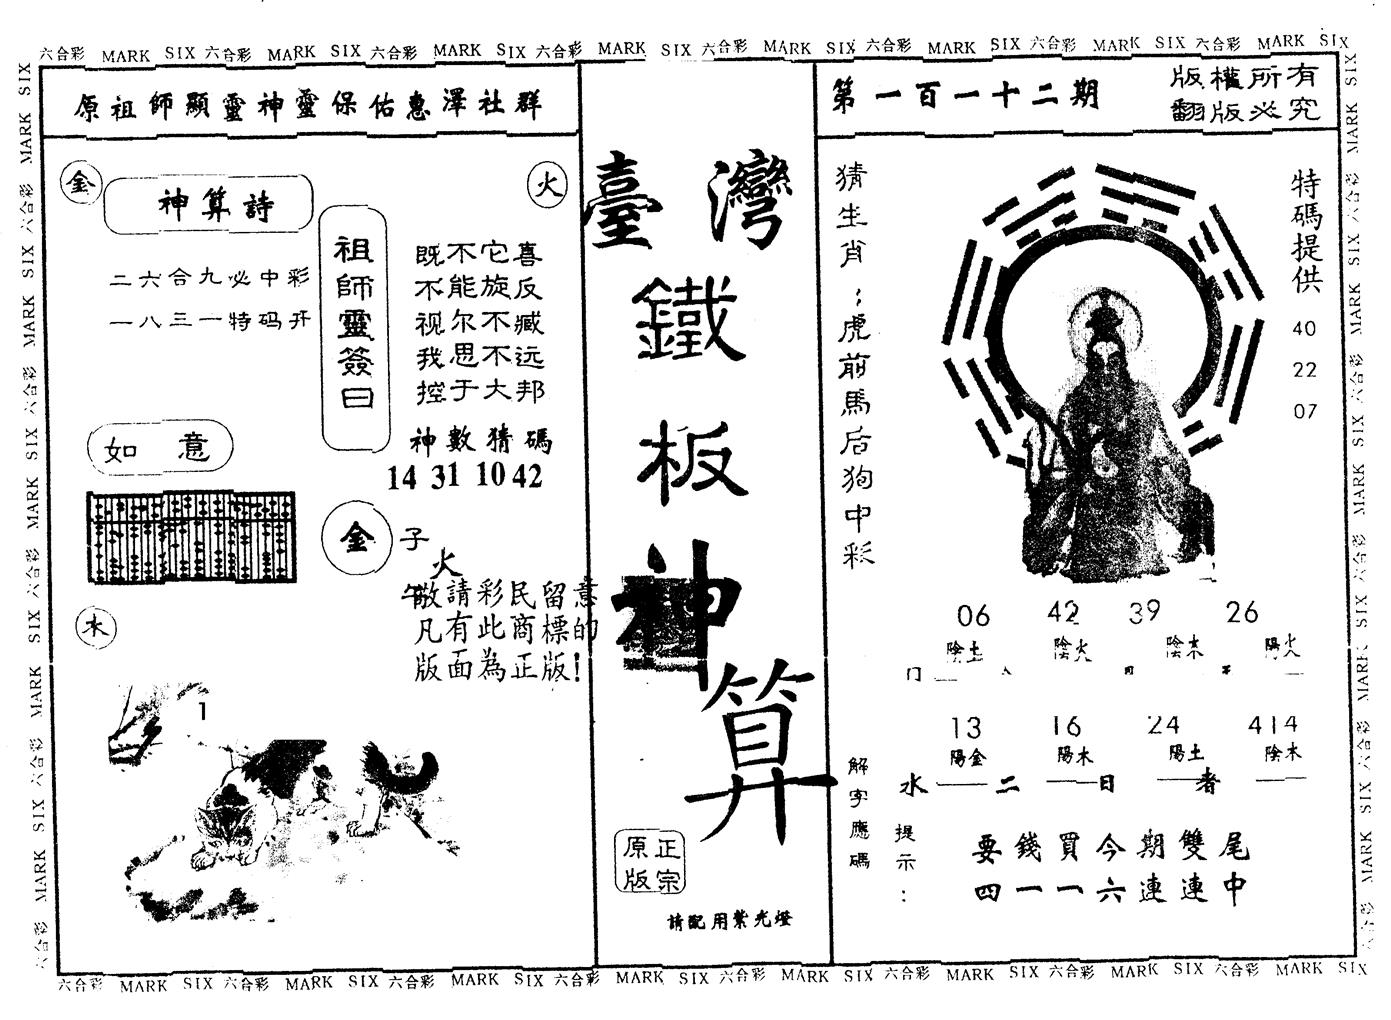 六合彩 MARK SIX 六合彩 MARK SIX 六合彩 MARK SIX 六合彩 MARK SIX 六合彩 MARK SIX 六合彩 MARK SIX 六合彩 MARK SIX 六合彩 MARK SIX
原祖師顯靈神靈保佑惠澤社群
金
神算詩
火
二六合九必中彩
一八三一特码开
祖師靈簽曰
既不它喜
不能旋反
视尔不臧
我思不远
控于大邦
神數猜碼
14 31 10 42
如意
金
子
火
午
水
敬請彩民留意
凡有此商標的
版面為正版!
1
臺灣
鐵
板
神
算
正宗
原版
請配用紫光燈
第一百一十二期
版權所有
翻版必究
猜生肖：虎前馬后狗中彩
特碼提供
40
22
07
06 42 39 26
陰土 陰火 陰木 陽火
13 16 24 414
陽金 陽木 陽土 陰木
水——二——日——者——
解字應碼
提示：
要錢買今期雙尾
四一一六連連中
六合彩 MARK SIX 六合彩 MARK SIX 六合彩 MARK SIX 六合彩 MARK SIX 六合彩 MARK SIX 六合彩 MARK SIX 六合彩 MARK SIX 六合彩 MARK SIX